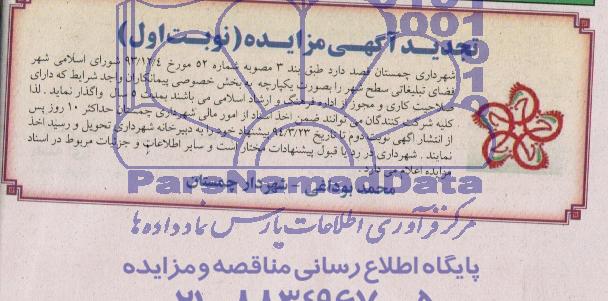 تجدید آگهی مزایده (نوبت اول)
شهرداری چمستان قصد دارد طبق بند ۳ مصوبه شماره ۵۲ مورخ ۹۳/۱۲/۴ شورای اسلامی شهر
فضای تبلیغاتی سطح شهر را بصورت یکپارچه به بخش خصوصی پیمانکاران واجد شرایط که دارای
صلاحیت کاری و مجوز از اداره فرهنگ و ارشاد اسلامی می باشند بمدت ۵ سال واگذار نماید . لذا
کلیه شرکت کنندگان می توانند ضمن اخذ اسناد از امور مالی شهرداری چمستان حداکثر ۱۰ روز پس
از انتشار آگهی نوبت دوم تا تاریخ ۹۴/۳/۲۳ پیشنهاد خود را به دبیرخانه شهرداری تحویل و رسید اخذ
نمایند . شهرداری در رد یا قبول پیشنهادات مختار است و سایر اطلاعات و جزئیات مربوط در اسناد
مزایده اعلام می دارد.
محمد بوداغی - شهردار چمستان
ParsNamadData
مرکز فرآوری اطلاعات پارس نماد داده ها
پایگاه اطلاع رسانی مناقصه و مزایده